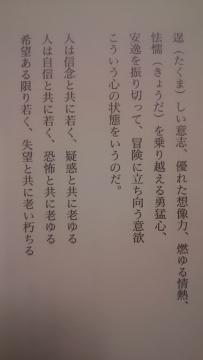 逞（たくま）しい意志、優れた想像力、燃ゆる情熱、
怯懦（きょうだ）を乗り越える勇猛心、
安逸を振り切って、冒険に立ち向う意欲
こういう心の状態をいうのだ。
人は信念と共に若く、疑惑と共に老ゆる
人は自信と共に若く、恐怖と共に老ゆる
希望ある限り若く、失望と共に老い朽ちる